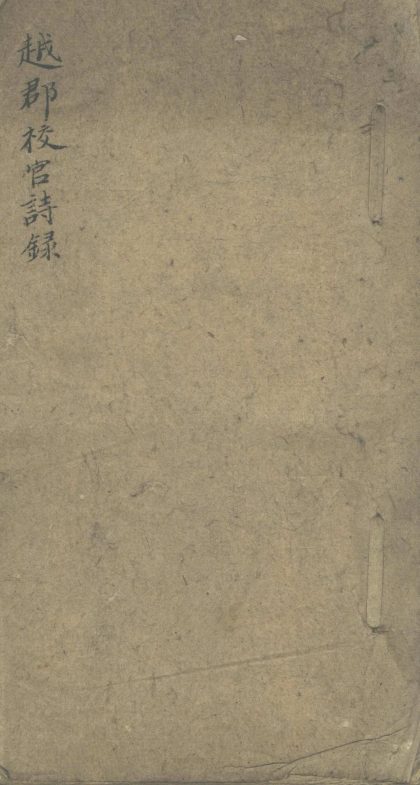 越郡校官詩録